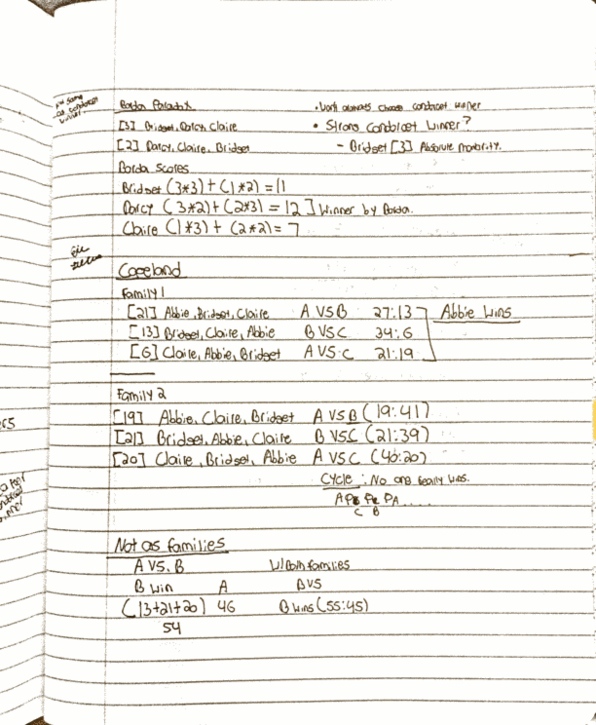 Borda Paradox
• Won't always choose condorcet winner
[3] Bridget, Darcy, Claire
• Strong Condorcet Winner?
[2] Darcy, Claire, Bridget
- Bridget [3] Absolute majority.
Borda Scores
Bridget (3*3)+(1*2)=11
Darcy (3*2)+(2*3)=12] Winner by Borda.
Claire (1*3)+(2*2)=7
Copeland
Family 1
[21] Abbie, Bridget, Claire A VS B 27:13
Abbie Wins
[13] Bridget, Claire, Abbie B VS C 34:6
[6] Claire, Abbie, Bridget A VS C 21:19
Family 2
[19] Abbie, Claire, Bridget A VS B (19:41)
[21] Bridget, Abbie, Claire B VS C (21:39)
[20] Claire, Bridget, Abbie A VS C (40:20)
Cycle: No one really wins.
C B
Not as families
A VS. B W/ both families
B win A B VS
(13+21+20) 46 B wins (55:45)
54